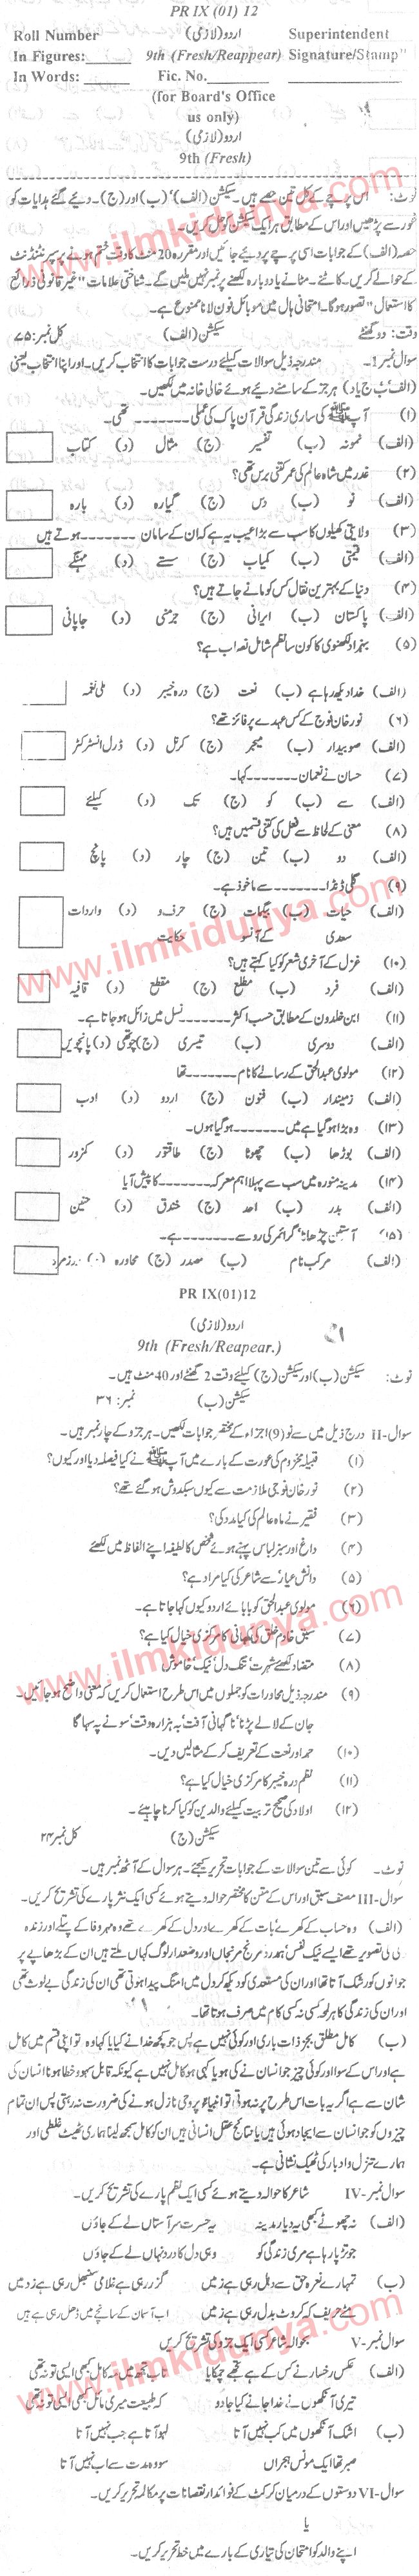 PR IX (01) 12
Roll Number (اردو (لازمی Superintendent
In Figures:______ 9th (Fresh/Reappear) Signature/Stamp"
In Words:______ Fic. No.______
(for Board's Office
us only)
اردو (لازمی)
9th (Fresh)
نوٹ: اس پرچے کے کل تین حصے ہیں۔ سیکشن (الف)، (ب) اور (ج)۔ دیئے گئے ہدایات کو
غور سے پڑھیں اور اس کے مطابق ہر ایک سیکشن کو حل کریں۔
حصہ (الف) کے جوابات اسی پرچے پر دیئے جائیں اور مقررہ 20 منٹ کا وقت ختم ہونے پر سپرنٹنڈنٹ
کے حوالے کریں۔ کاٹنے، مٹانے یا دوبارہ لکھنے پر نمبر نہیں ملیں گے۔ شناختی علامات "غیر قانونی ذرائع
کا استعمال" تصور ہوگا۔ امتحانی ہال میں موبائل فون لانا ممنوع ہے۔
وقت: دو گھنٹے سیکشن (الف) کل نمبر: ۷۵
سوال نمبر 1۔ مندرجہ ذیل سوالات کیلئے درست جوابات کا انتخاب کریں۔ اور اپنا انتخاب یعنی
(الف، ب، ج یا د) ہر جز کے سامنے دیئے ہوئے خالی خانہ میں لکھیں۔
(۱) آپ ﷺ کی ساری زندگی قرآن پاک کی عملی ______ تھی۔
(الف) نمونہ (ب) تفسیر (ج) مثال (د) کتاب
(۲) غدر میں شاہ عالم کی عمر کتنی برس تھی؟
(الف) نو (ب) دس (ج) گیارہ (د) بارہ
(۳) ولایتی کھیلوں کا سب سے بڑا عیب یہ ہے کہ ان کے سامان ______ ہوتے ہیں
(الف) قیمتی (ب) کمیاب (ج) سستے (د) مہنگے
(۴) دنیا کے بہترین نقال کس کو مانے جاتے ہیں؟
(الف) پاکستان (ب) ایرانی (ج) جرمنی (د) جاپانی
(۵) بہزاد لکھنوی کا کون سا نظم شامل نصاب ہے؟
(الف) خدا دیکھ رہا ہے (ب) نعت (ج) درہ خیبر (د) ملی نغمہ
(۶) نور خان فوج کے کس عہدے پر فائز تھے؟
(الف) صوبیدار (ب) میجر (ج) کرنل (د) ڈرل انسٹرکٹر
(۷) حسان نے نعمان ______ کہا۔
(الف) سے (ب) کو (ج) تک (د) کیلئے
(۸) معنی کے لحاظ سے فعل کی کتنی قسمیں ہیں؟
(الف) دو (ب) تین (ج) چار (د) پانچ
(۹) گلی ڈنڈا ______ سے ماخوذ ہے۔
(الف) حیات (ب) بیگمات (ج) حرف و (د) واردات
سعدی کے آنسو حکایت
(۱۰) غزل کے آخری شعر کو کیا کہتے ہیں؟
(الف) فرد (ب) مطلع (ج) مقطع (د) قافیہ
(۱۱) ابن خلدون کے مطابق حسب اکثر ______ نسل میں زائل ہو جاتا ہے۔
(الف) دوسری (ب) تیسری (ج) چوتھی (د) پانچویں
(۱۲) مولوی عبدالحق کے رسالے کا نام ______ تھا
(الف) زمیندار (ب) فنون (ج) اردو (د) ادب
(۱۳) وہ بڑا ہو گیا ہے میں ______ ہو گیا ہوں۔
(الف) بوڑھا (ب) چھوٹا (ج) طاقتور (د) کمزور
(۱۴) مدینہ منورہ میں سب سے پہلا اہم معرکہ ______ کا پیش آیا
(الف) بدر (ب) احد (ج) خندق (د) حنین
(۱۵) آستین چڑھانا، گرائمر کی رو سے ______ ہے۔
(الف) مرکب نام (ب) مصدر (ج) محاورہ (د) روزمرہ
PR IX(01)12
اردو (لازمی)
9th (Fresh/Reapear.)
نوٹ: سیکشن (ب) اور سیکشن (ج) کیلئے وقت 2 گھنٹے اور 40 منٹ ہیں۔
سیکشن (ب) نمبر: ۳۶
سوال-II درج ذیل میں سے نو (9) اجزاء کے مختصر جوابات لکھیں۔ ہر جزو کے چار نمبر ہیں۔
(۱) قبیلہ مخزوم کی عورت کے بارے میں آپ ﷺ نے کیا فیصلہ دیا اور کیوں؟
(۲) نور خان فوجی ملازمت سے کیوں سبکدوش ہو گئے تھے؟
(۳) فقیر نے ماہ عالم کی کیا مدد کی؟
(۴) داغ اور سبز لباس پہنے ہوئے شخص کا لطیفہ اپنے الفاظ میں لکھئے
(۵) دانش عیار سے شاعر کی کیا مراد ہے؟
(۶) مولوی عبدالحق کو بابائے اردو کیوں کہا جاتا ہے۔
(۷) سبق خادم خلق کی کہانی کا مرکزی خیال کیا ہے؟
(۸) متضاد لکھئے شہرت، تنگ دل، نیک، خاموش
(۹) مندرجہ ذیل محاورات کو جملوں میں اس طرح استعمال کریں کہ معنی واضح ہو جائیں۔
جان کے لالے پڑنا، ناگہانی آفت، ہزار وقت، سونے پہ سہاگا
(۱۰) حمد اور نعت کے تعریف کر کے مثالیں دیں۔
(۱۱) نظم درہ خیبر کا مرکزی خیال کیا ہے؟
(۱۲) اولاد کی صحیح تربیت کیلئے والدین کو کیا کرنا چاہیئے۔
سیکشن (ج) کل نمبر ۲۴
نوٹ۔ کوئی سے تین سوالات کے جوابات تحریر کیجئے۔ ہر سوال کے آٹھ نمبر ہیں۔
سوال-III مصنف سبق اور اس کے متن کا مختصر حوالہ دیتے ہوئے کسی ایک نثر پارے کی تشریح کریں۔
(الف) وہ حساب کے کھرے بات کے کھرے اور دل کے کھرے تھے وہ مہر و وفا کے پتلے اور زندہ
دلی کی تصویر تھے ایسے نیک نفس، ہمدرد مرنج مرنجاں اور وضعدار لوگ کہاں ملتے ہیں ان کے بڑھاپے پر
جوانوں کو رشک آتا تھا اور ان کی مستعدی کو دیکھ کر دل میں امنگ پیدا ہوتی تھی ان کی زندگی بے لوث تھی
اور ان کی زندگی کا ہر لمحہ کسی نہ کسی کام میں صرف ہوتا تھا۔
(ب) کامل مطلق بجز ذات باری اور کوئی نہیں ہے پس جو کچھ خدا نے کیا یا کہا وہ تو اپنی قسم میں کامل
ہے اور اس کے سوا اور کوئی چیز جو انسان نے کی ہو یا کہی ہو کامل نہیں ہے کیونکہ قابل سہو و خطا ہونا انسان کی
شان سے ہے اگر یہ بات اس طرح پر نہ ہوتی تو انبیاء پر وحی نازل ہونے کی ضرورت نہ رہتی پس ان تمام
چیزوں کو جو انسان سے ایجاد ہوئی ہیں یا نتائج عقل انسانی ہیں ان کو کامل سمجھ لینا ہماری ٹھیٹ غلطی اور
ہمارے تنزل و ادبار کی ٹھیک نشانی ہے۔
سوال نمبر-IV شاعر کا حوالہ دیتے ہوئے کسی ایک نظم پارے کی تشریح کریں۔
(الف) نہ چھوٹے کبھی یہ دیار مدینہ یہ حسرت سر آستاں لے کے جاؤں
جو تڑپا رہا ہے مری زندگی کو وہی دل کا درد نہاں لے کے جاؤں
(ب) تمہارے نعرہ حق سے دہل رہی ہے زمیں گزر رہی ہے غلامی سنبھل رہی ہے زمیں
ہٹے حریف کہ کروٹ بدل رہی ہے زمیں اب آسمان کے سانچے میں ڈھل رہی ہے زمیں
سوال نمبر-V بحوالہ شاعر کسی ایک جزو کی تشریح کریں
(الف) عکس رخسار نے کس کے ہے تجھے چمکایا تاب تجھ میں مہ کامل کبھی ایسی تو نہ تھی
تیری آنکھوں نے خدا جانے کیا کیا جادو کہ طبیعت میری مائل کبھی ایسی تو نہ تھی
(ب) اشک آنکھوں میں کب نہیں آتا لہو آتا ہے جب نہیں آتا
صبر تھا ایک مونس ہجراں سو وہ مدت سے اب نہیں آتا
سوال-VI دوستوں کے درمیان کرکٹ کے فوائد اور نقصانات پر مکالمہ تحریر کریں۔
یا
اپنے والد کو امتحان کی تیاری کے بارے میں خط تحریر کریں۔
www.ilmkidunya.com
www.ilmkidunya.com
www.ilmkidunya.com
www.ilmkidunya.com